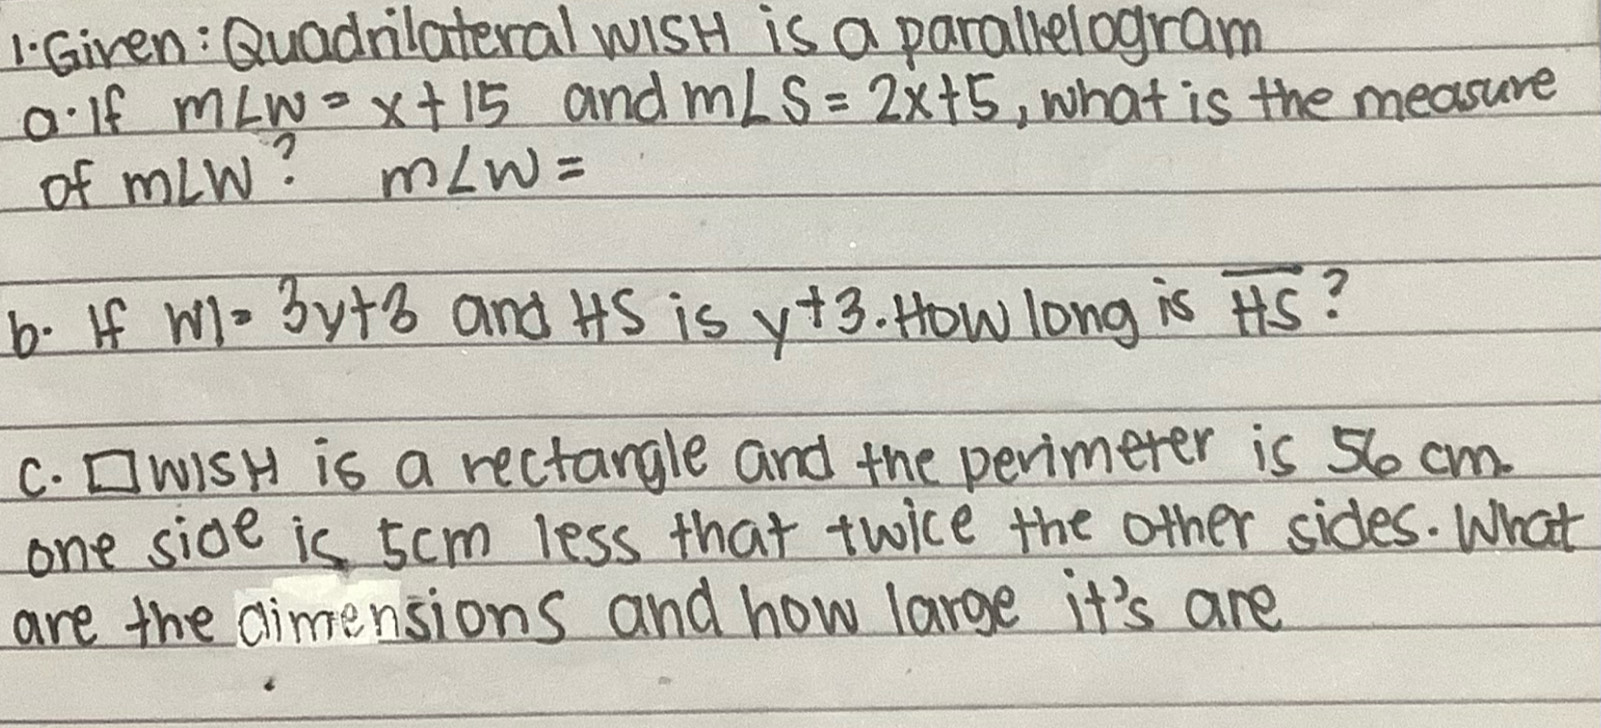 1. Given: Quadrilateral WISH is a parallelogram
a. If m∠W = x + 15 and m∠S = 2x+5, what is the measure
of m∠W? m∠W =
b. If WI = 3y+3 and HS is y+3. How long is H̅S̅?
c. ▭WISH is a rectangle and the perimeter is 56 cm.
one side is 5cm less that twice the other sides. What
are the dimensions and how large it's are